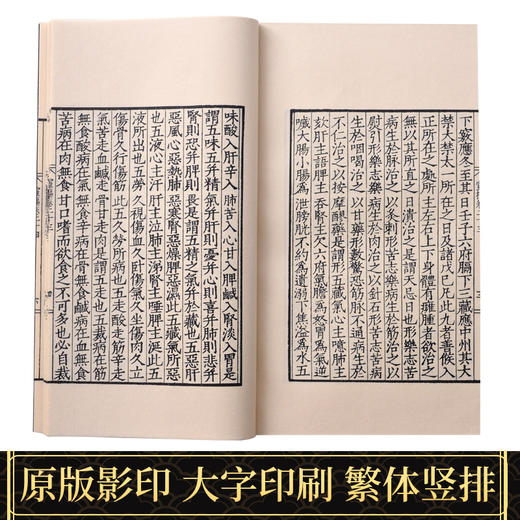 下竅應冬至其日壬子六府膈下三藏應中州其大
禁大禁太一所在之日及諸戊己凡此九者善候八
正所在之處所主左右上下身體有癰腫者欲治之
無以其所直之日潰治之是謂天忌日也形樂志苦
病生於脉治之以灸刺形苦志樂病生於筋治之以
熨引形樂志樂病生於肉治之以針石形苦志苦病
生於咽喝治之以甘藥形數驚恐筋脉不通病生於
不仁治之以按摩醪藥是謂形五藏氣心主噫肺主
欬肝主語脾主吞腎主欠六府氣膽為怒胃為氣逆
噦大腸小腸為泄膀胱不約為遺溺下焦溢為水五
味酸入肝辛入肺苦入心甘入脾鹹入腎淡入胃是
謂五味五并精氣并肝則憂并心則喜并肺則悲并
腎則恐并脾則畏是謂五精之氣并於藏也五惡肝
惡風心惡熱肺惡寒腎惡燥脾惡濕此五藏氣所惡
也五液心主汗肝主泣肺主涕腎主唾脾主涎此五
液所出也五勞久視傷血久臥傷氣久坐傷肉久立
傷骨久行傷筋此五久勞所病也五走酸走筋辛走
氣苦走血鹹走骨甘走肉是謂五走也五裁病在筋
無食酸病在氣無食辛病在骨無食鹹病在血無食
苦病在肉無食甘口嗜而欲食之不可多也必自裁
原版影印 大字印刷 繁体竖排